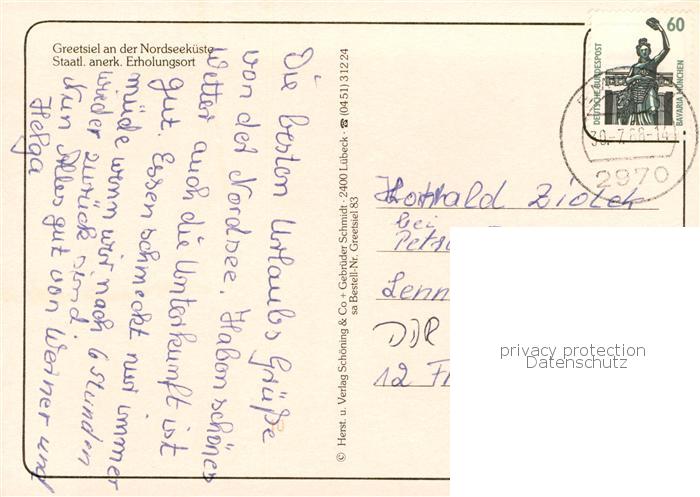 Greetsiel an der Nordseeküste
Staatl. anerk. Erholungsort
Die besten Urlaubs Grüße
von der Nordsee. Haben schönes
Wetter auch die Unterkunft ist
gut. Essen schmeckt nur immer
müde wenn wir nach 6 Stunden
wieder zurück sind.
Nun Alles gut von Werner und
Helga
© Herst. u. Verlag Schöning & Co + Gebrüder Schmidt · 2400 Lübeck · ☎ (04 51) 3 12 24
sa Bestell-Nr. Greetsiel 83
60
DEUTSCHE BUNDESPOST
BAVARIA MÜNCHEN
30.-7.88-14
2970
bei
Lenn
DDR
12 F
privacy protection
Datenschutz